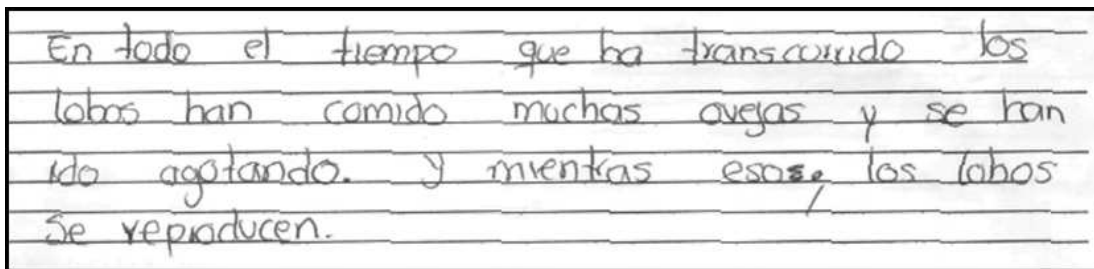 En todo el tiempo que ha transcurrido los
lobos han comido muchas ovejas y se han
ido agotando. y mientras eso, los lobos
se reproducen.